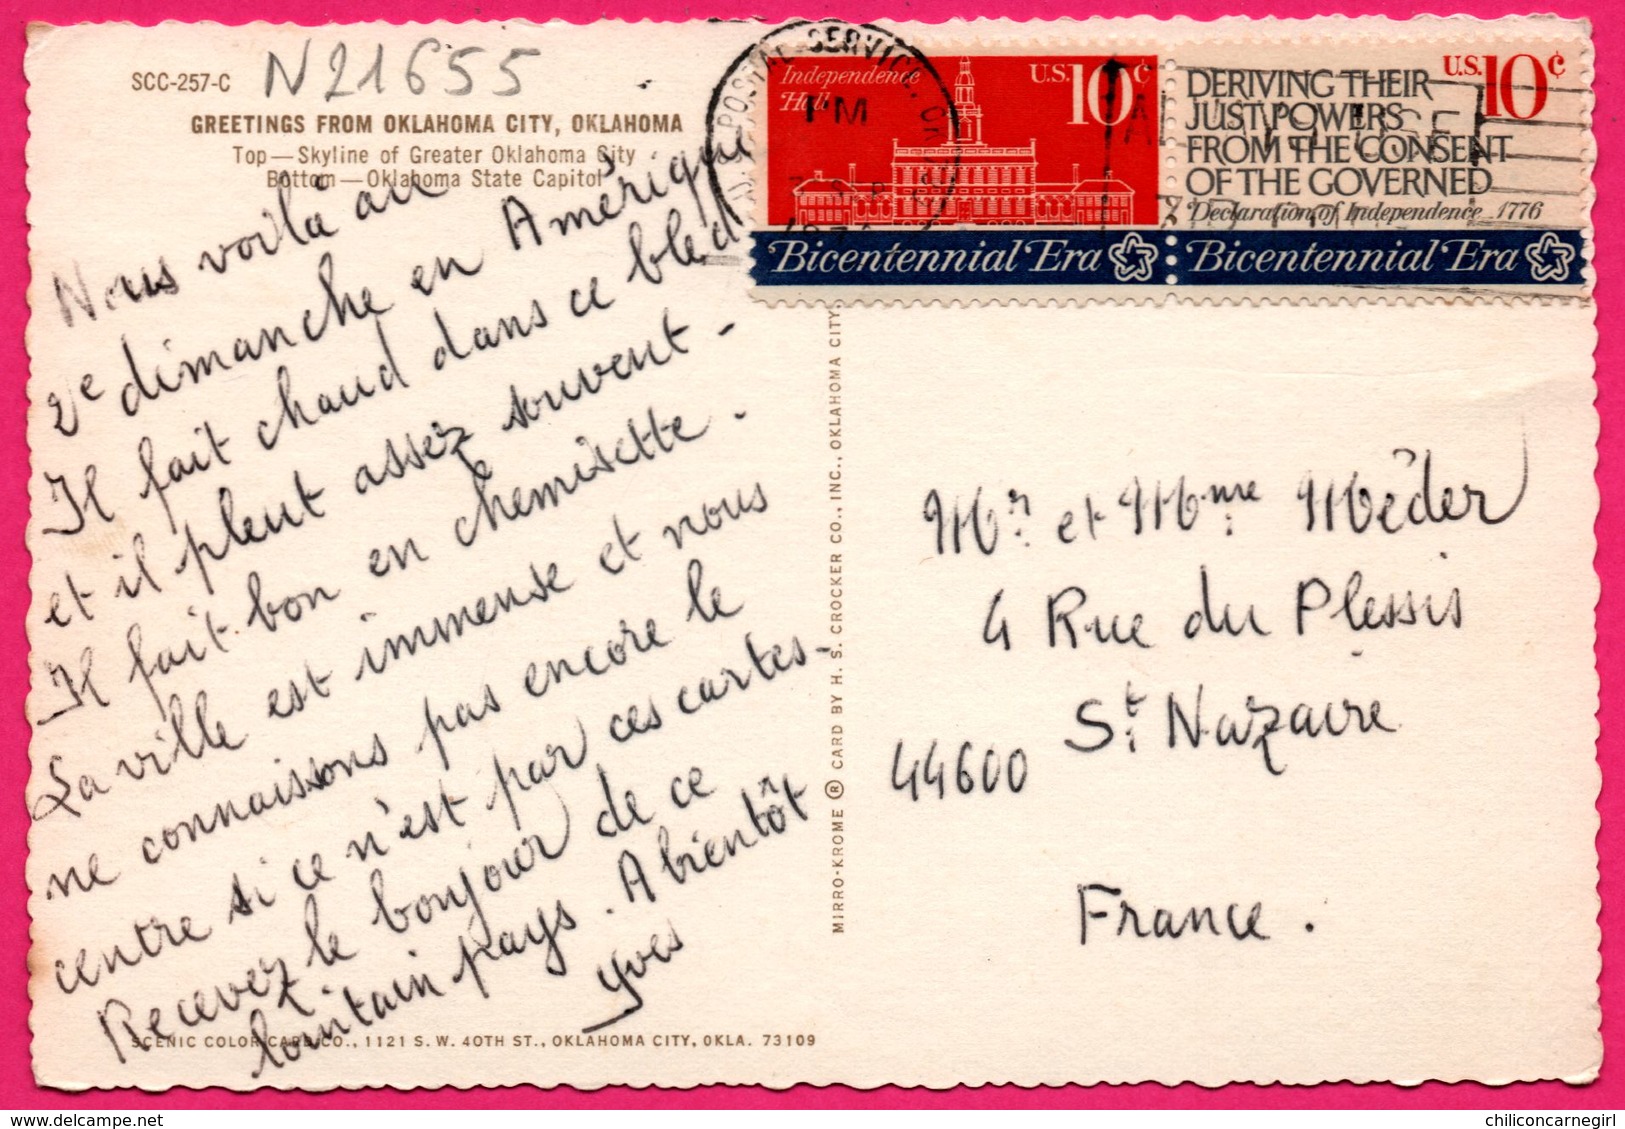 SCC-257-C
N21655
GREETINGS FROM OKLAHOMA CITY, OKLAHOMA
Top—Skyline of Greater Oklahoma City
Bottom—Oklahoma State Capitol
Nous voilà au
2e dimanche en Amérique
Il fait chaud dans ce bled
et il pleut assez souvent-
Il fait bon en chemisette.
La ville est immense et nous
ne connaissons pas encore le
centre si ce n'est par ces cartes-
Recevez le bonjour de ce
lointain pays. A bientôt
Yves
SCENIC COLOR CARD CO., 1121 S. W. 40TH ST., OKLAHOMA CITY, OKLA. 73109
MIRRO-KROME ® CARD BY H. S. CROCKER CO., INC., OKLAHOMA CITY,
POSTAL SERVICE, OK
PM
Independence
Hall
U.S. 10c
Bicentennial Era
U.S. 10c
DERIVING THEIR
JUST POWERS
FROM THE CONSENT
OF THE GOVERNED
Declaration of Independence, 1776
Bicentennial Era
Mr. et Mme Méder
4 Rue du Plessis
St. Nazaire
44600
France.
chiliconcarnegirl